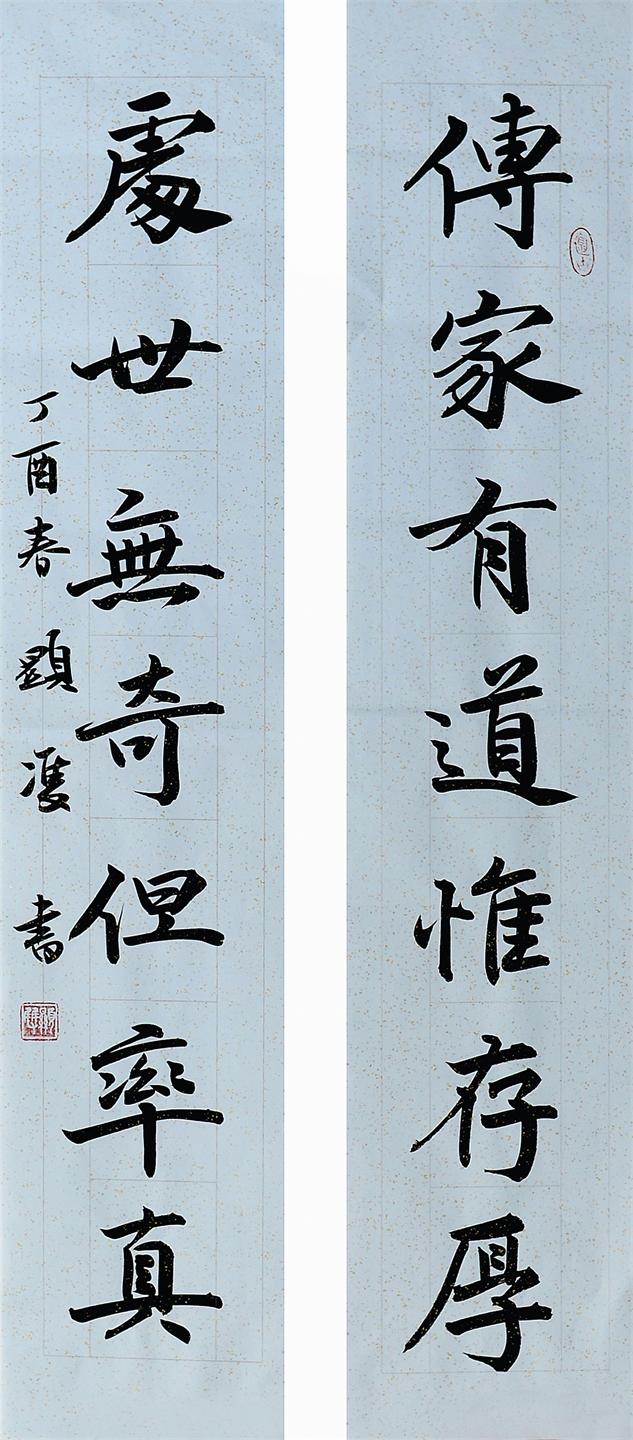 傳家有道惟存厚
處世無奇但率真
丁酉春顯濩書